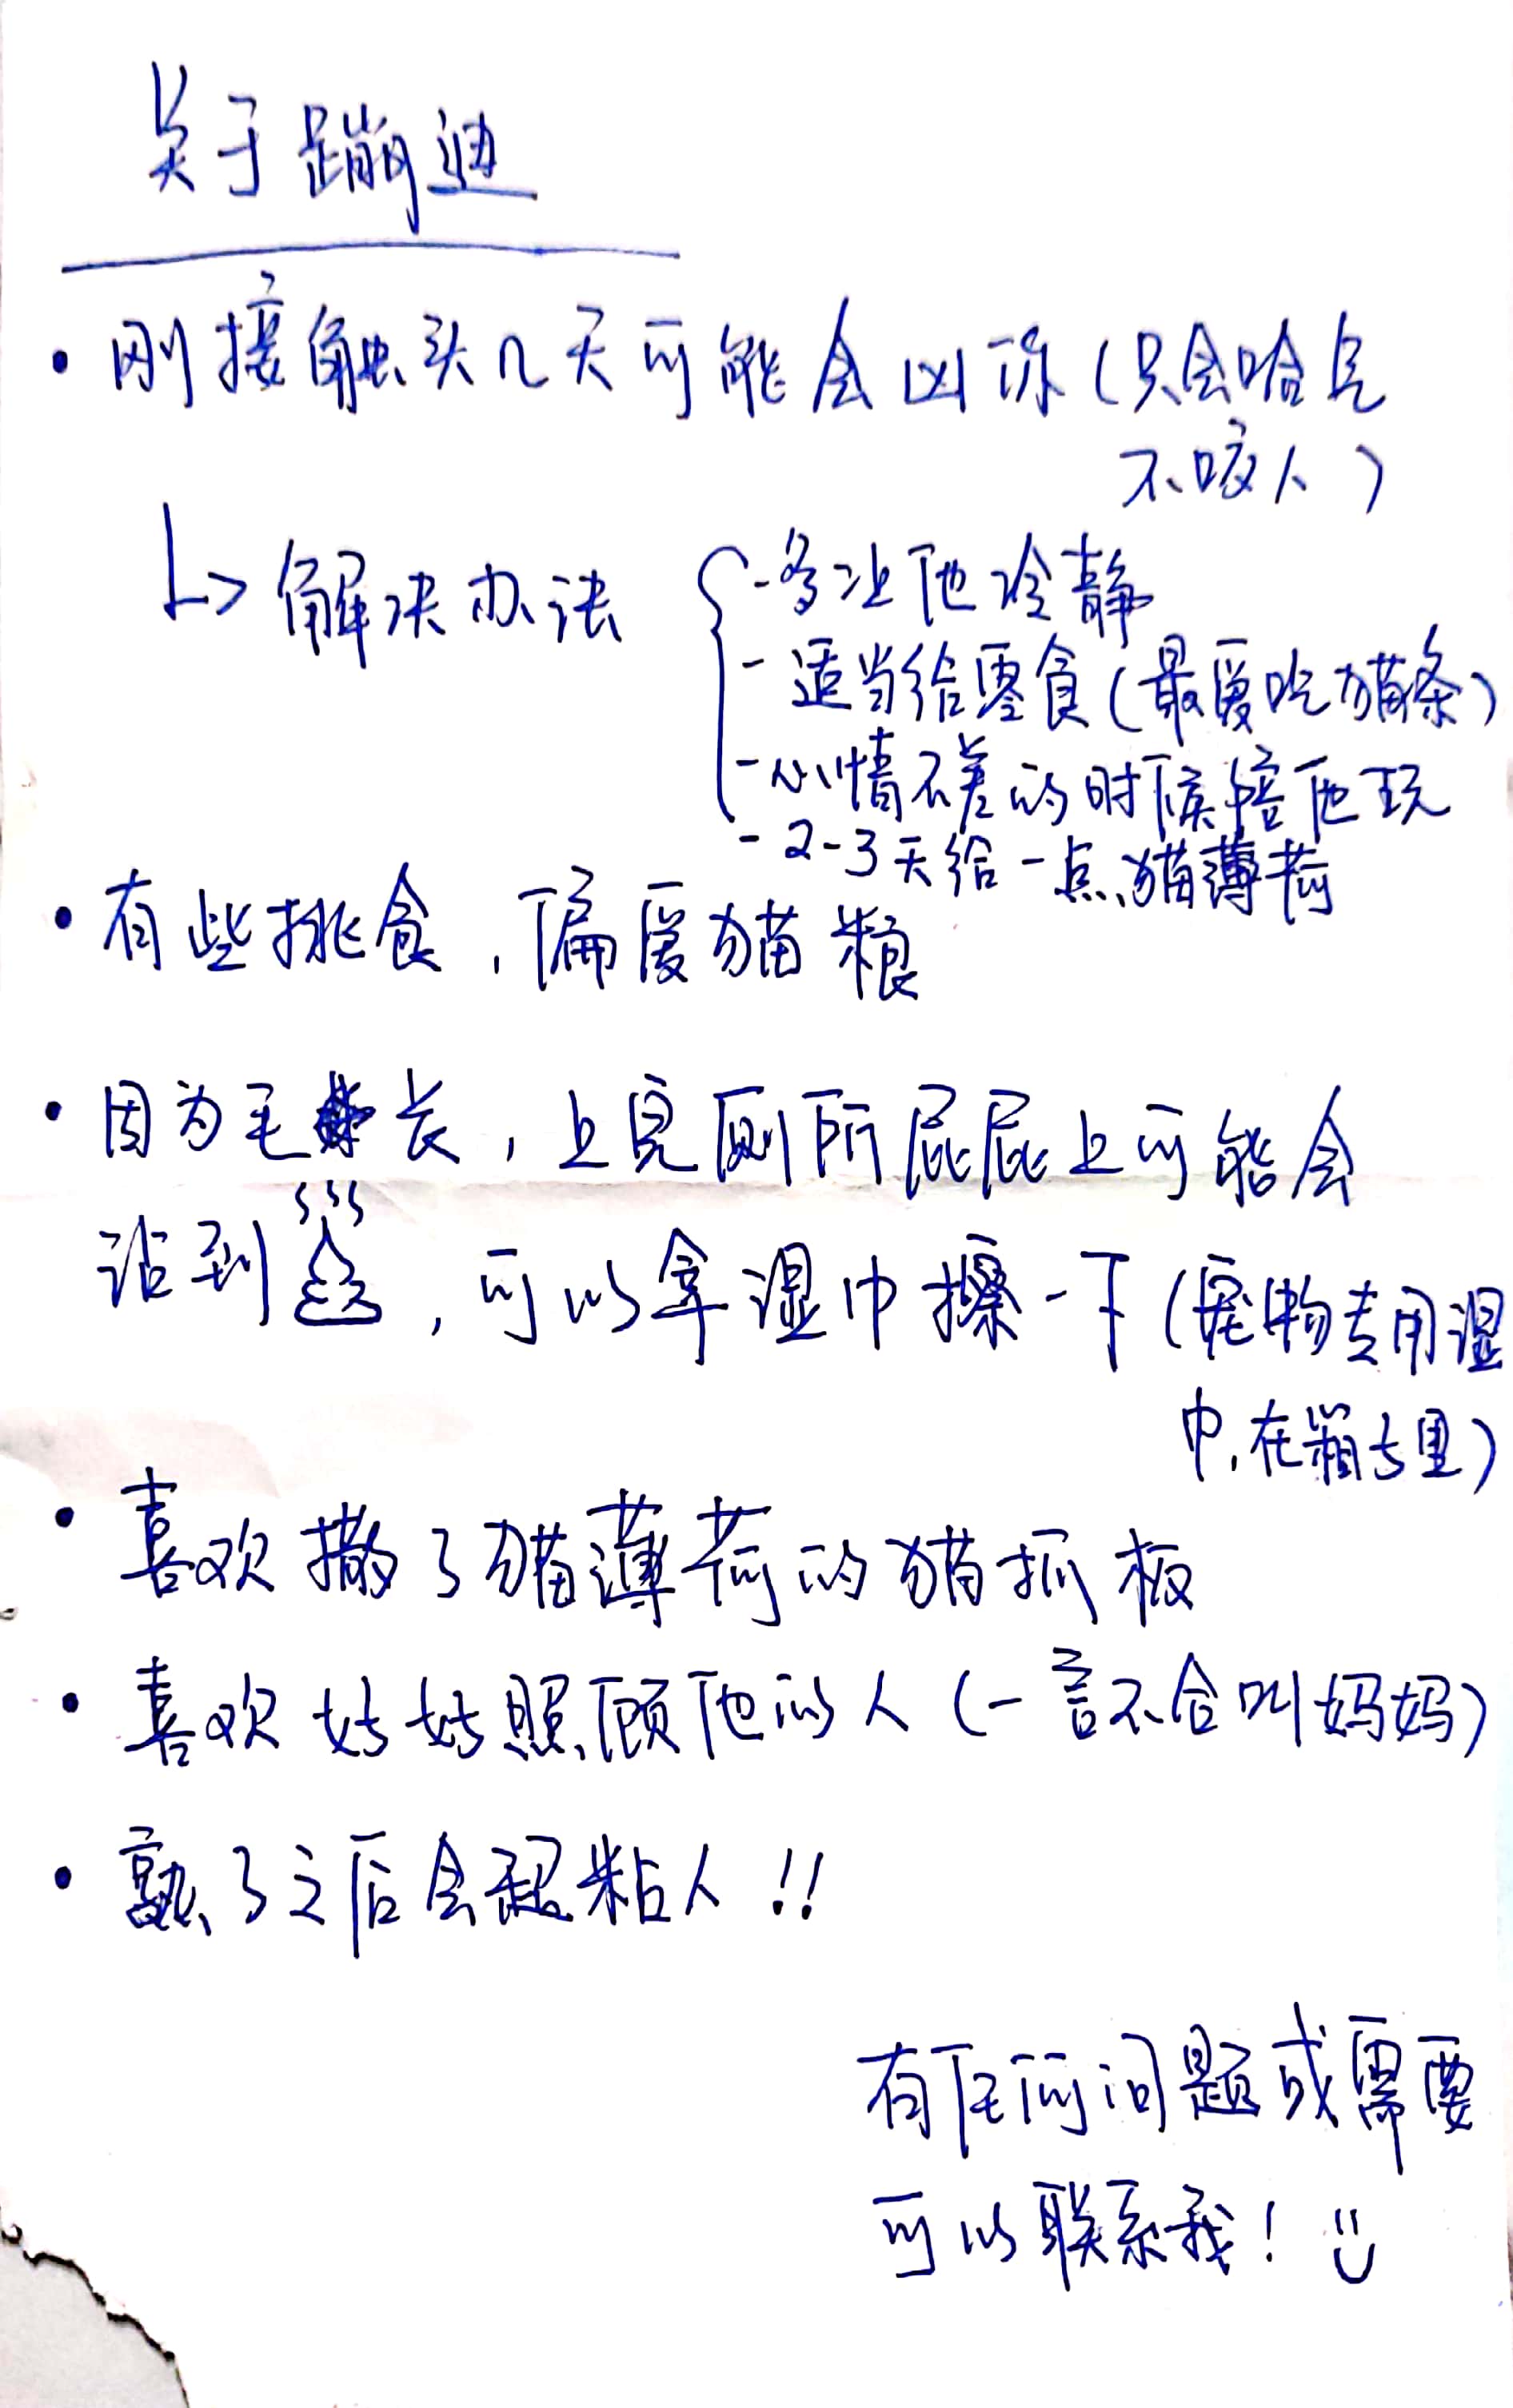 关于蹦迪
· 刚接触头几天可能会凶你(只会哈气
不咬人)
↳ 解决办法
- 多让他冷静
- 适当给零食(最爱吃猫条)
- 心情不差的时候陪他玩
- 2-3天给一点猫薄荷
· 有些挑食,偏爱猫粮
· 因为毛长,上完厕所屁屁上可能会
沾到💩,可以拿湿巾擦一下(宠物专用湿
巾,在箱子里)
· 喜欢撒了猫薄荷的猫抓板
· 喜欢好好照顾他的人(一言不合叫妈妈)
· 熟了之后会超粘人!!
有任何问题或需要
可以联系我! :)